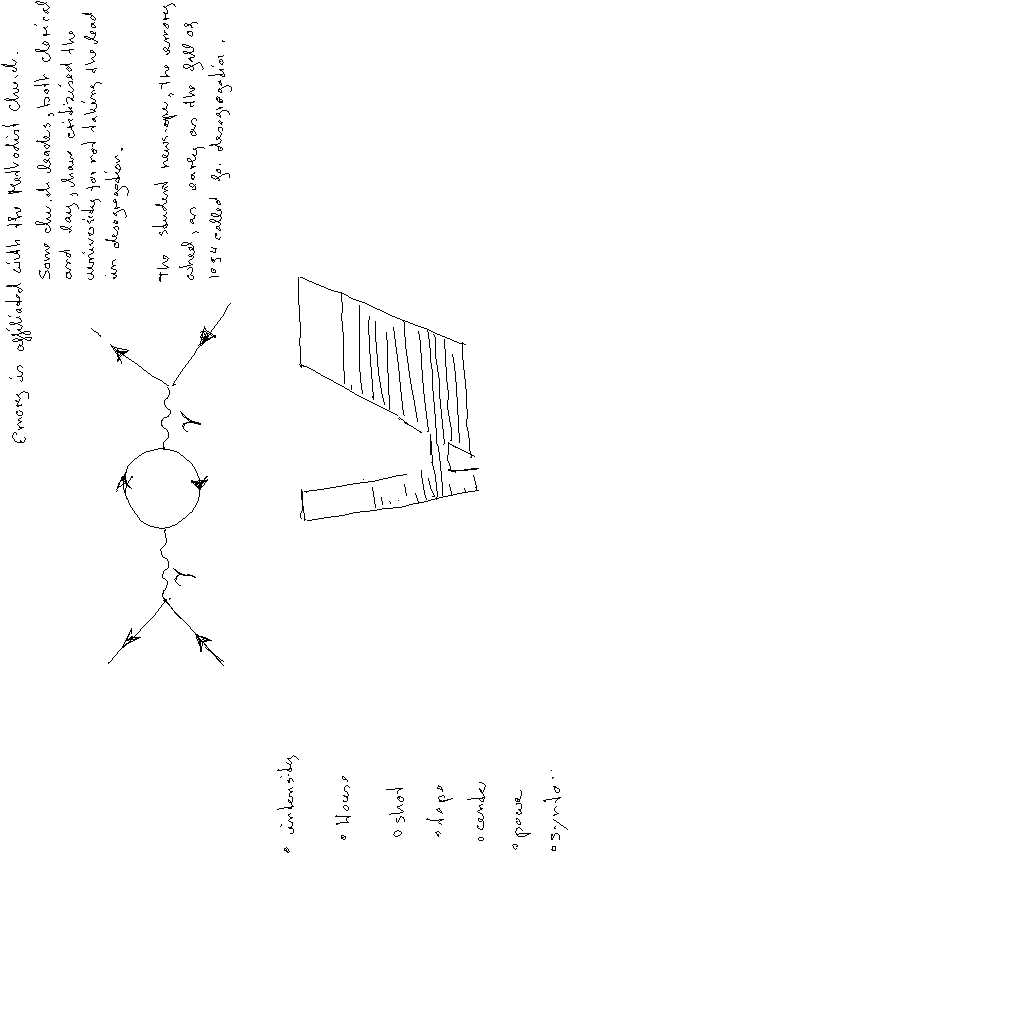 Emory is affiliated with the Methodist
Some leaders, both clerical
and lay, have criticised the
university for not taking the lead
in desegregation.
The student the emory
wheel, as early as the fall of
1954 called desegregation.
γ
γ
• intensity
• House
• shot
• tape
• center
• power